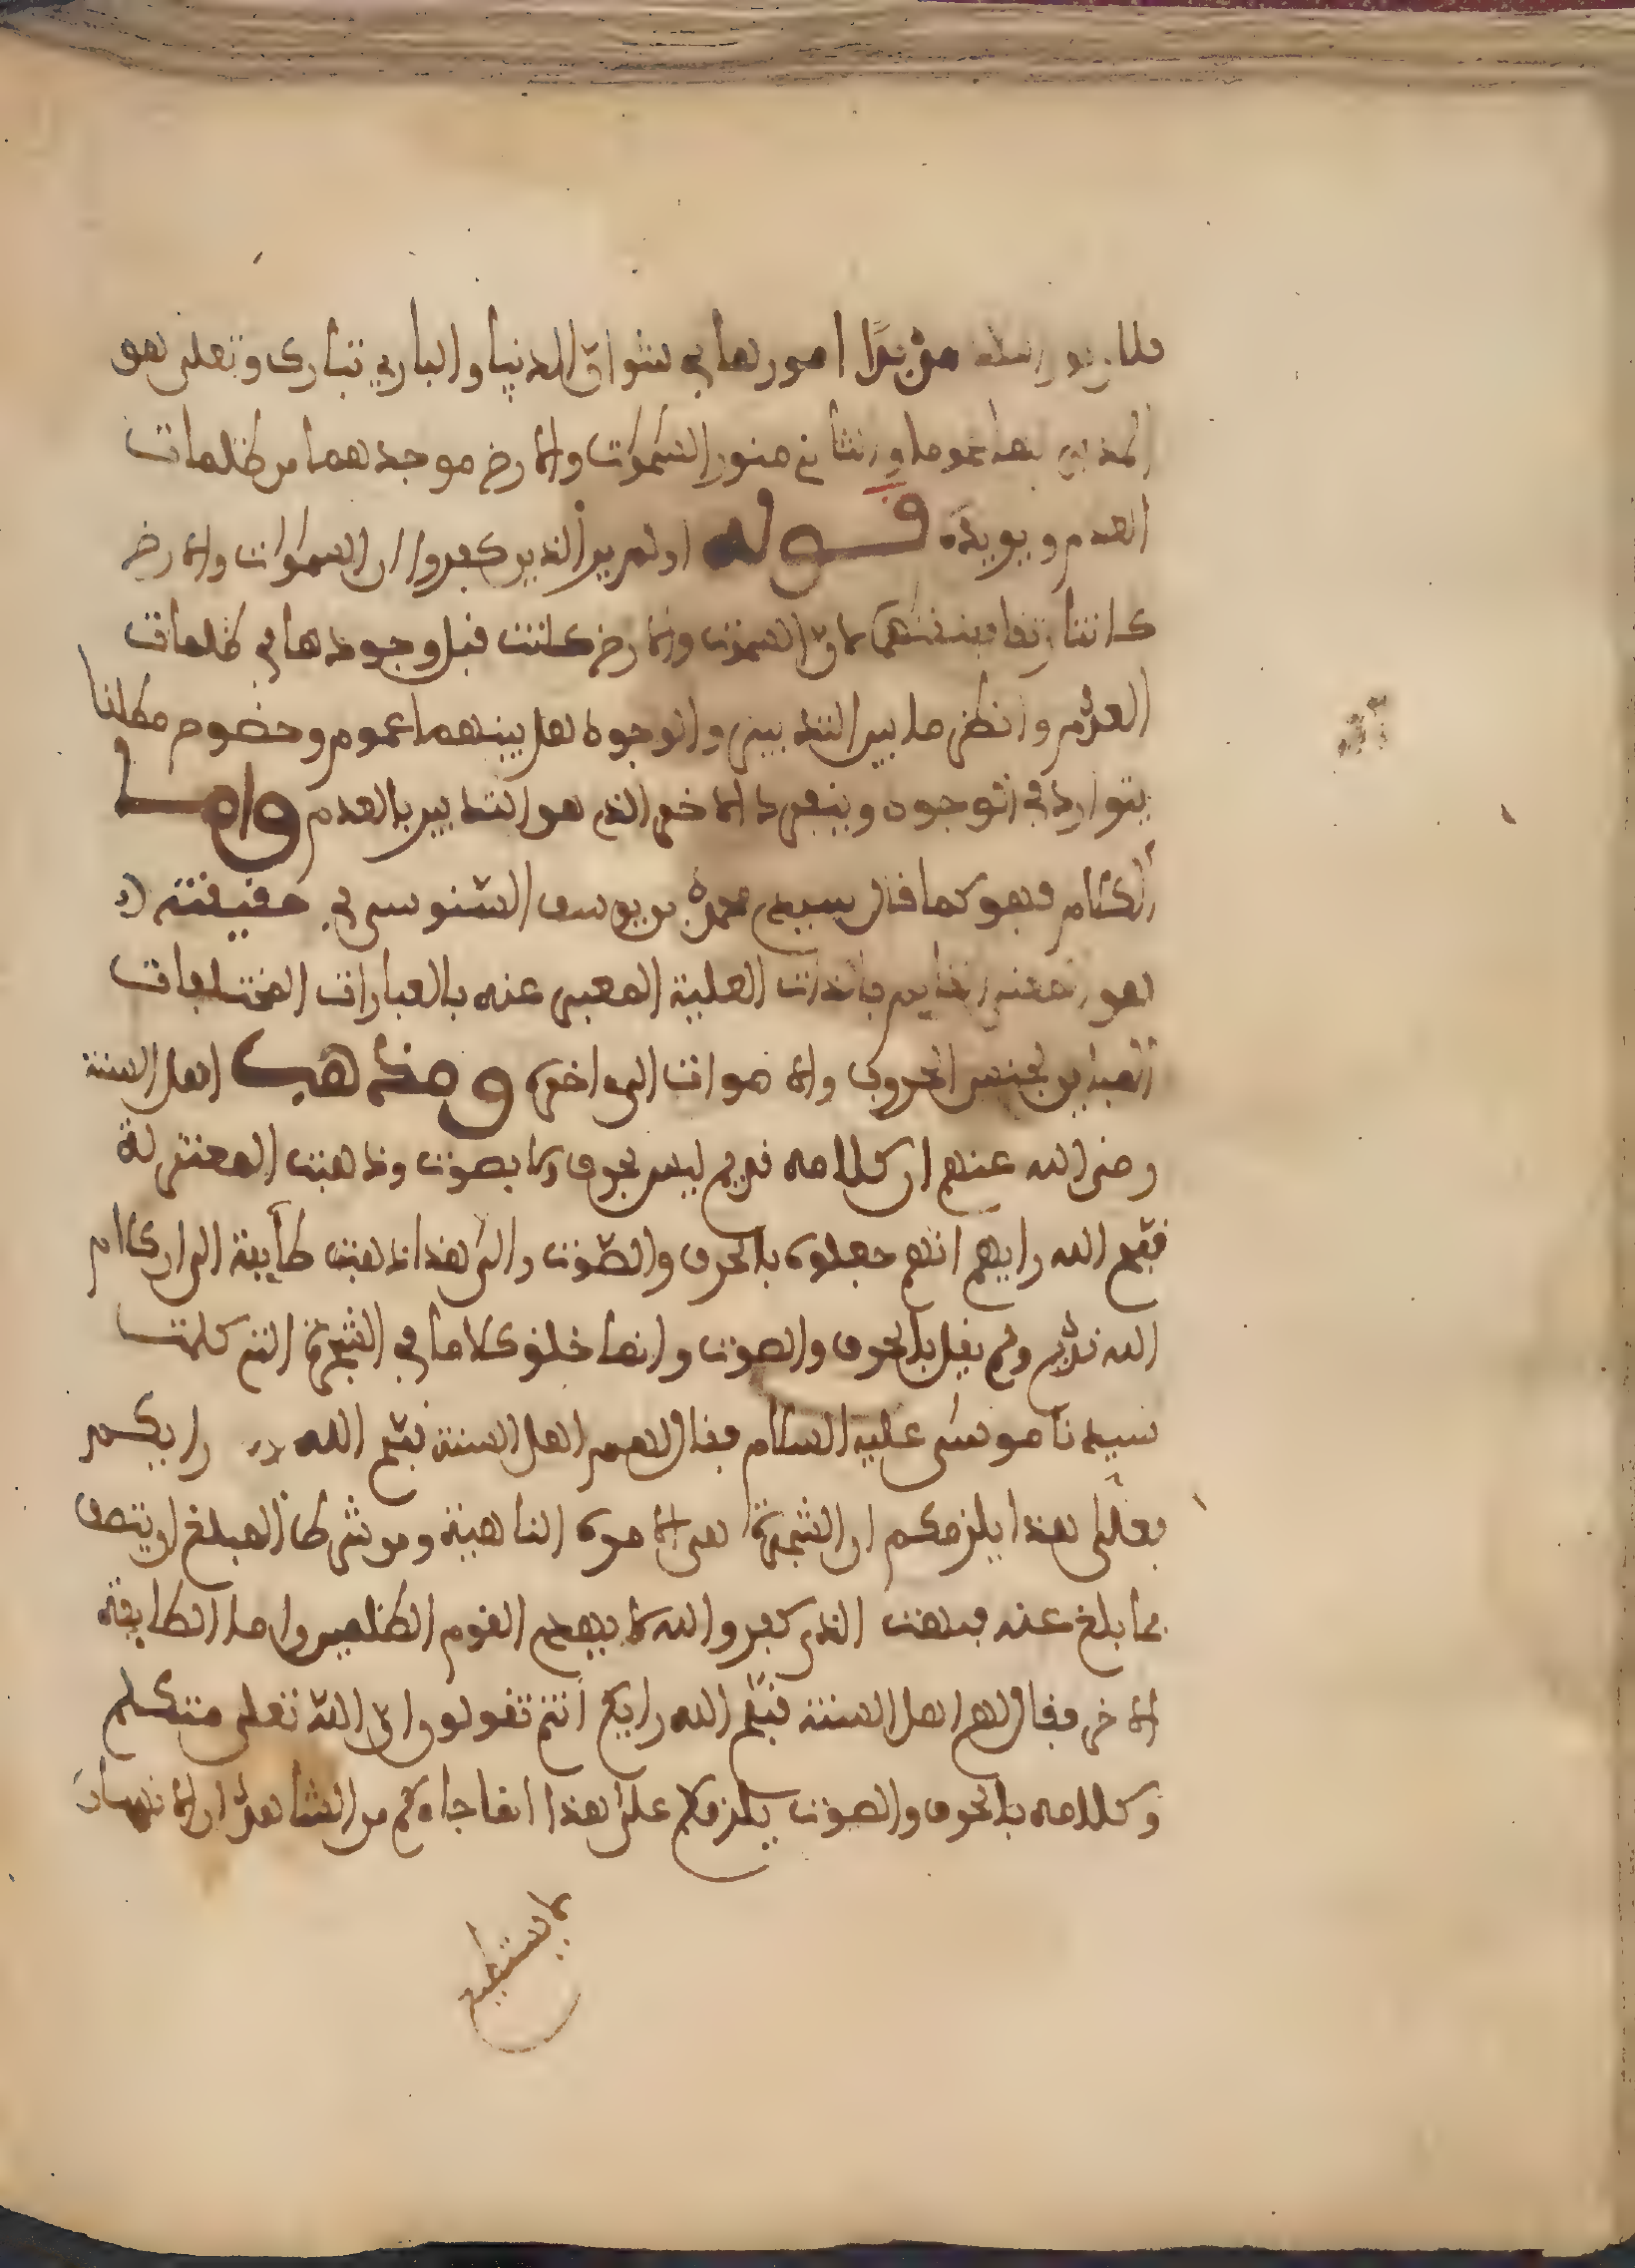 مدبرا امورها في شواق الدنيا والباري تبارك وتعلى هو
السموت والارض موجدهما من ظلمات
العدم ويويده قوله اولم ير الذين كفروا ان السموات والارض
كانتا رتقا ففتقنهما لان السموت والارض كانت قبل وجودها في ظلمات
العدم وانظر ما بين التدبير والوجود هل بينهما عموم وخصوص مطلقا
يتوارد في الوجود وينفرد الاخص الذي هو التدبير بالعدم واما
الكلام فهو كما قال سيدي محمد بن يوسف السنوسي في حقيقته
هو المعنى القايم بالذات العلية المعبر عنه بالعبارات المختلفات
المباين لجنس الحروف والاصوات الى اخره ومذهب اهل السنة
رضي الله عنهم ان كلامه قديم ليس بحرف ولا بصوت وذهبت المعتزلة
قبح الله رايهم انهم جعلوه بالحرف والصوت والى هذا ذهبت طايفة الى ان كلام
الله قديم ولم يقل بالحرف والصوت وانما خلق كلاما في الشجرة التي كلمت
سيدنا موسى عليه السلام فقال لهم اهل السنة قبح الله رايكم
فعلى هذا يلزمكم ان الشجرة هي الامرة الناهية ومن شرط المبلغ ان يتصف
بما بلغ عنه فبهت الذي كفر والله لا يهدي القوم الظلمين واما الطايفة
الاخرى فقال لهم اهل السنة قبح الله رايكم انتم تقولون ان الله تعلى متكلم
وكلامه بالحرف والصوت يلزمكم على هذا من الشاهد ان الانسان
لا يستطيع